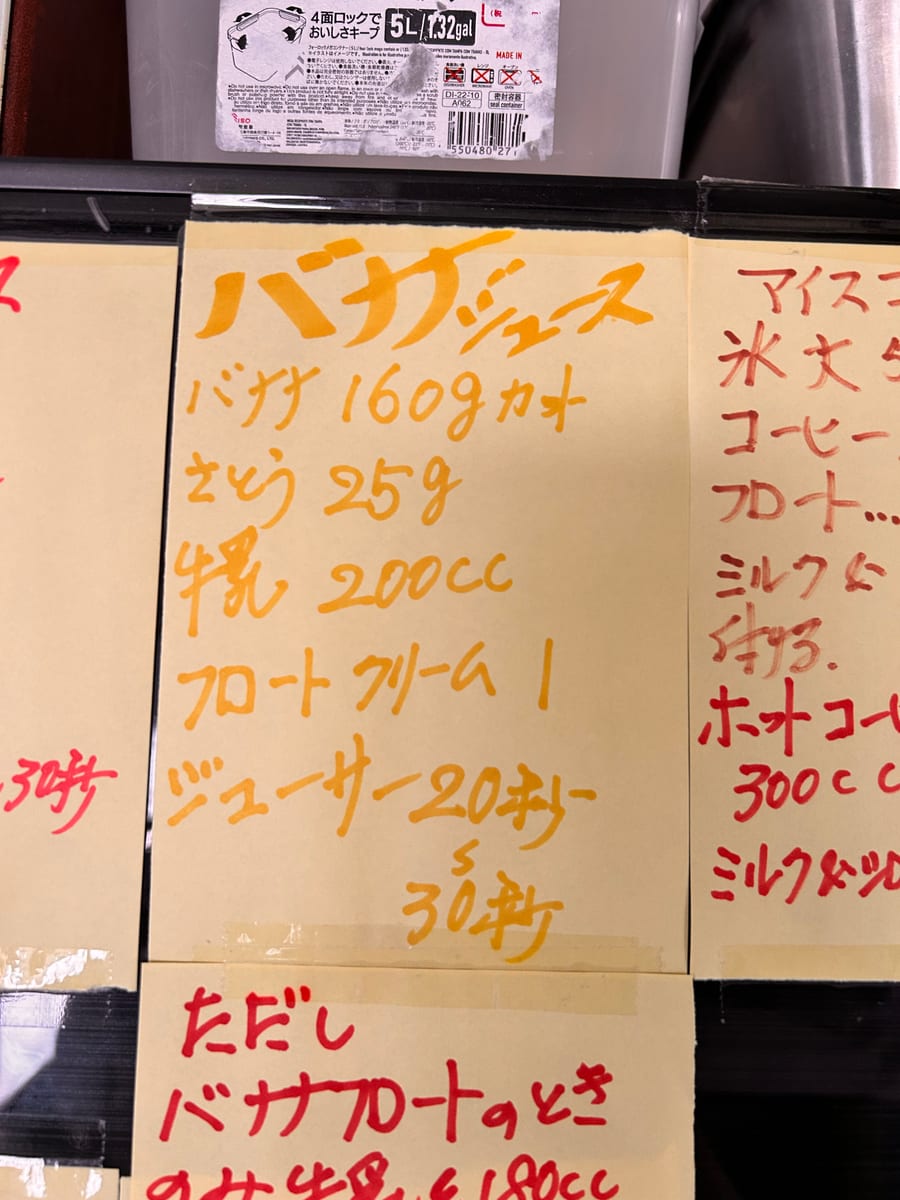 4面ロックで
おいしさキープ
5L/1.32gal
MADE IN
DI-22-10
A062
密封容器
seal container
550480 27
ス
30秒
バナナジュース
バナナ 160g カット
さとう 25g
牛乳 200cc
フロートクリーム 1
ジューサー20秒
〜
30秒
ただし
バナナフロートのとき
のみ牛乳は180cc
アイスコ
氷大5
コーヒー
フロート…
ミルク&
付する.
ホットコーヒ
300cc
ミルク&シロ